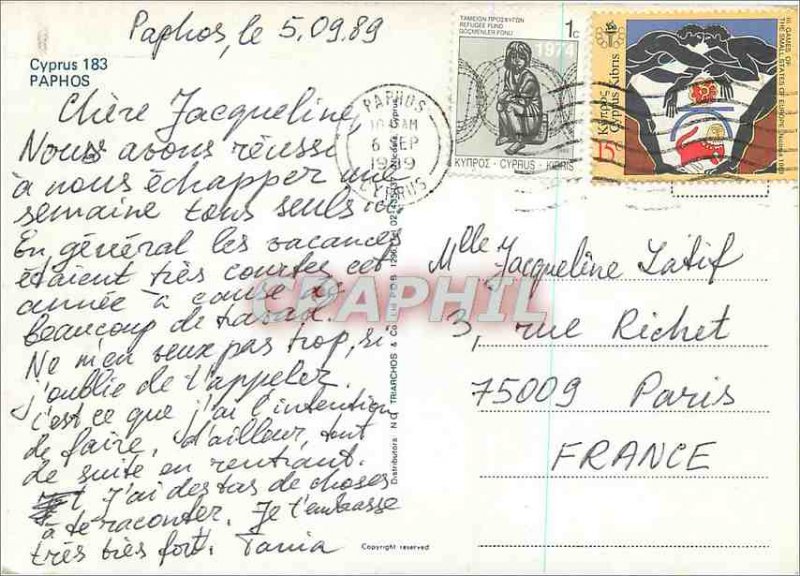 Paphos, le 5.09.89
Cyprus 183
PAPHOS
Chère Jacqueline,
Nous avons réussi
à nous échapper une
semaine tous seuls ici
En général les vacances
étaient très courtes cet
année à cause de
beaucoup de travail.
Ne m'en veux pas trop, si
j'oublie de t'appeler.
C'est ce que j'ai l'intention
de faire, d'ailleur, tout
de suite en rentrant.
J'ai des tas de choses
à te raconter. Je t'embrasse
très très fort. Tania
ΤΑΜΕΙΟΝ ΠΡΟΣΦΥΓΩΝ
REFUGEE FUND
GÖÇMENLER FONU
1c
1974
ΚΥΠΡΟΣ · CYPRUS · KIBRIS
III GAMES OF
THE SMALL STATES OF EUROPE
Κύπρος
Cyprus Kıbrıs
15c
PAPHOS
AM
6 SEP
1989
CYPRUS
Mlle Jacqueline Latif
3, rue Richet
75009 Paris
FRANCE
Distributors N D TRIARCHOS & Co
Cyprus
Copyright reserved
CPAPHIL